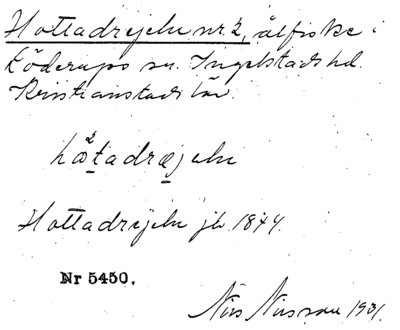 Hottadrejeln nr. 2, ålfiske i
Löderups sn. Ingelstads hd.
Kristianstads län.
Hottadrejeln jb. 1844.
Nr 5450.
Nils Nilsson 1931.